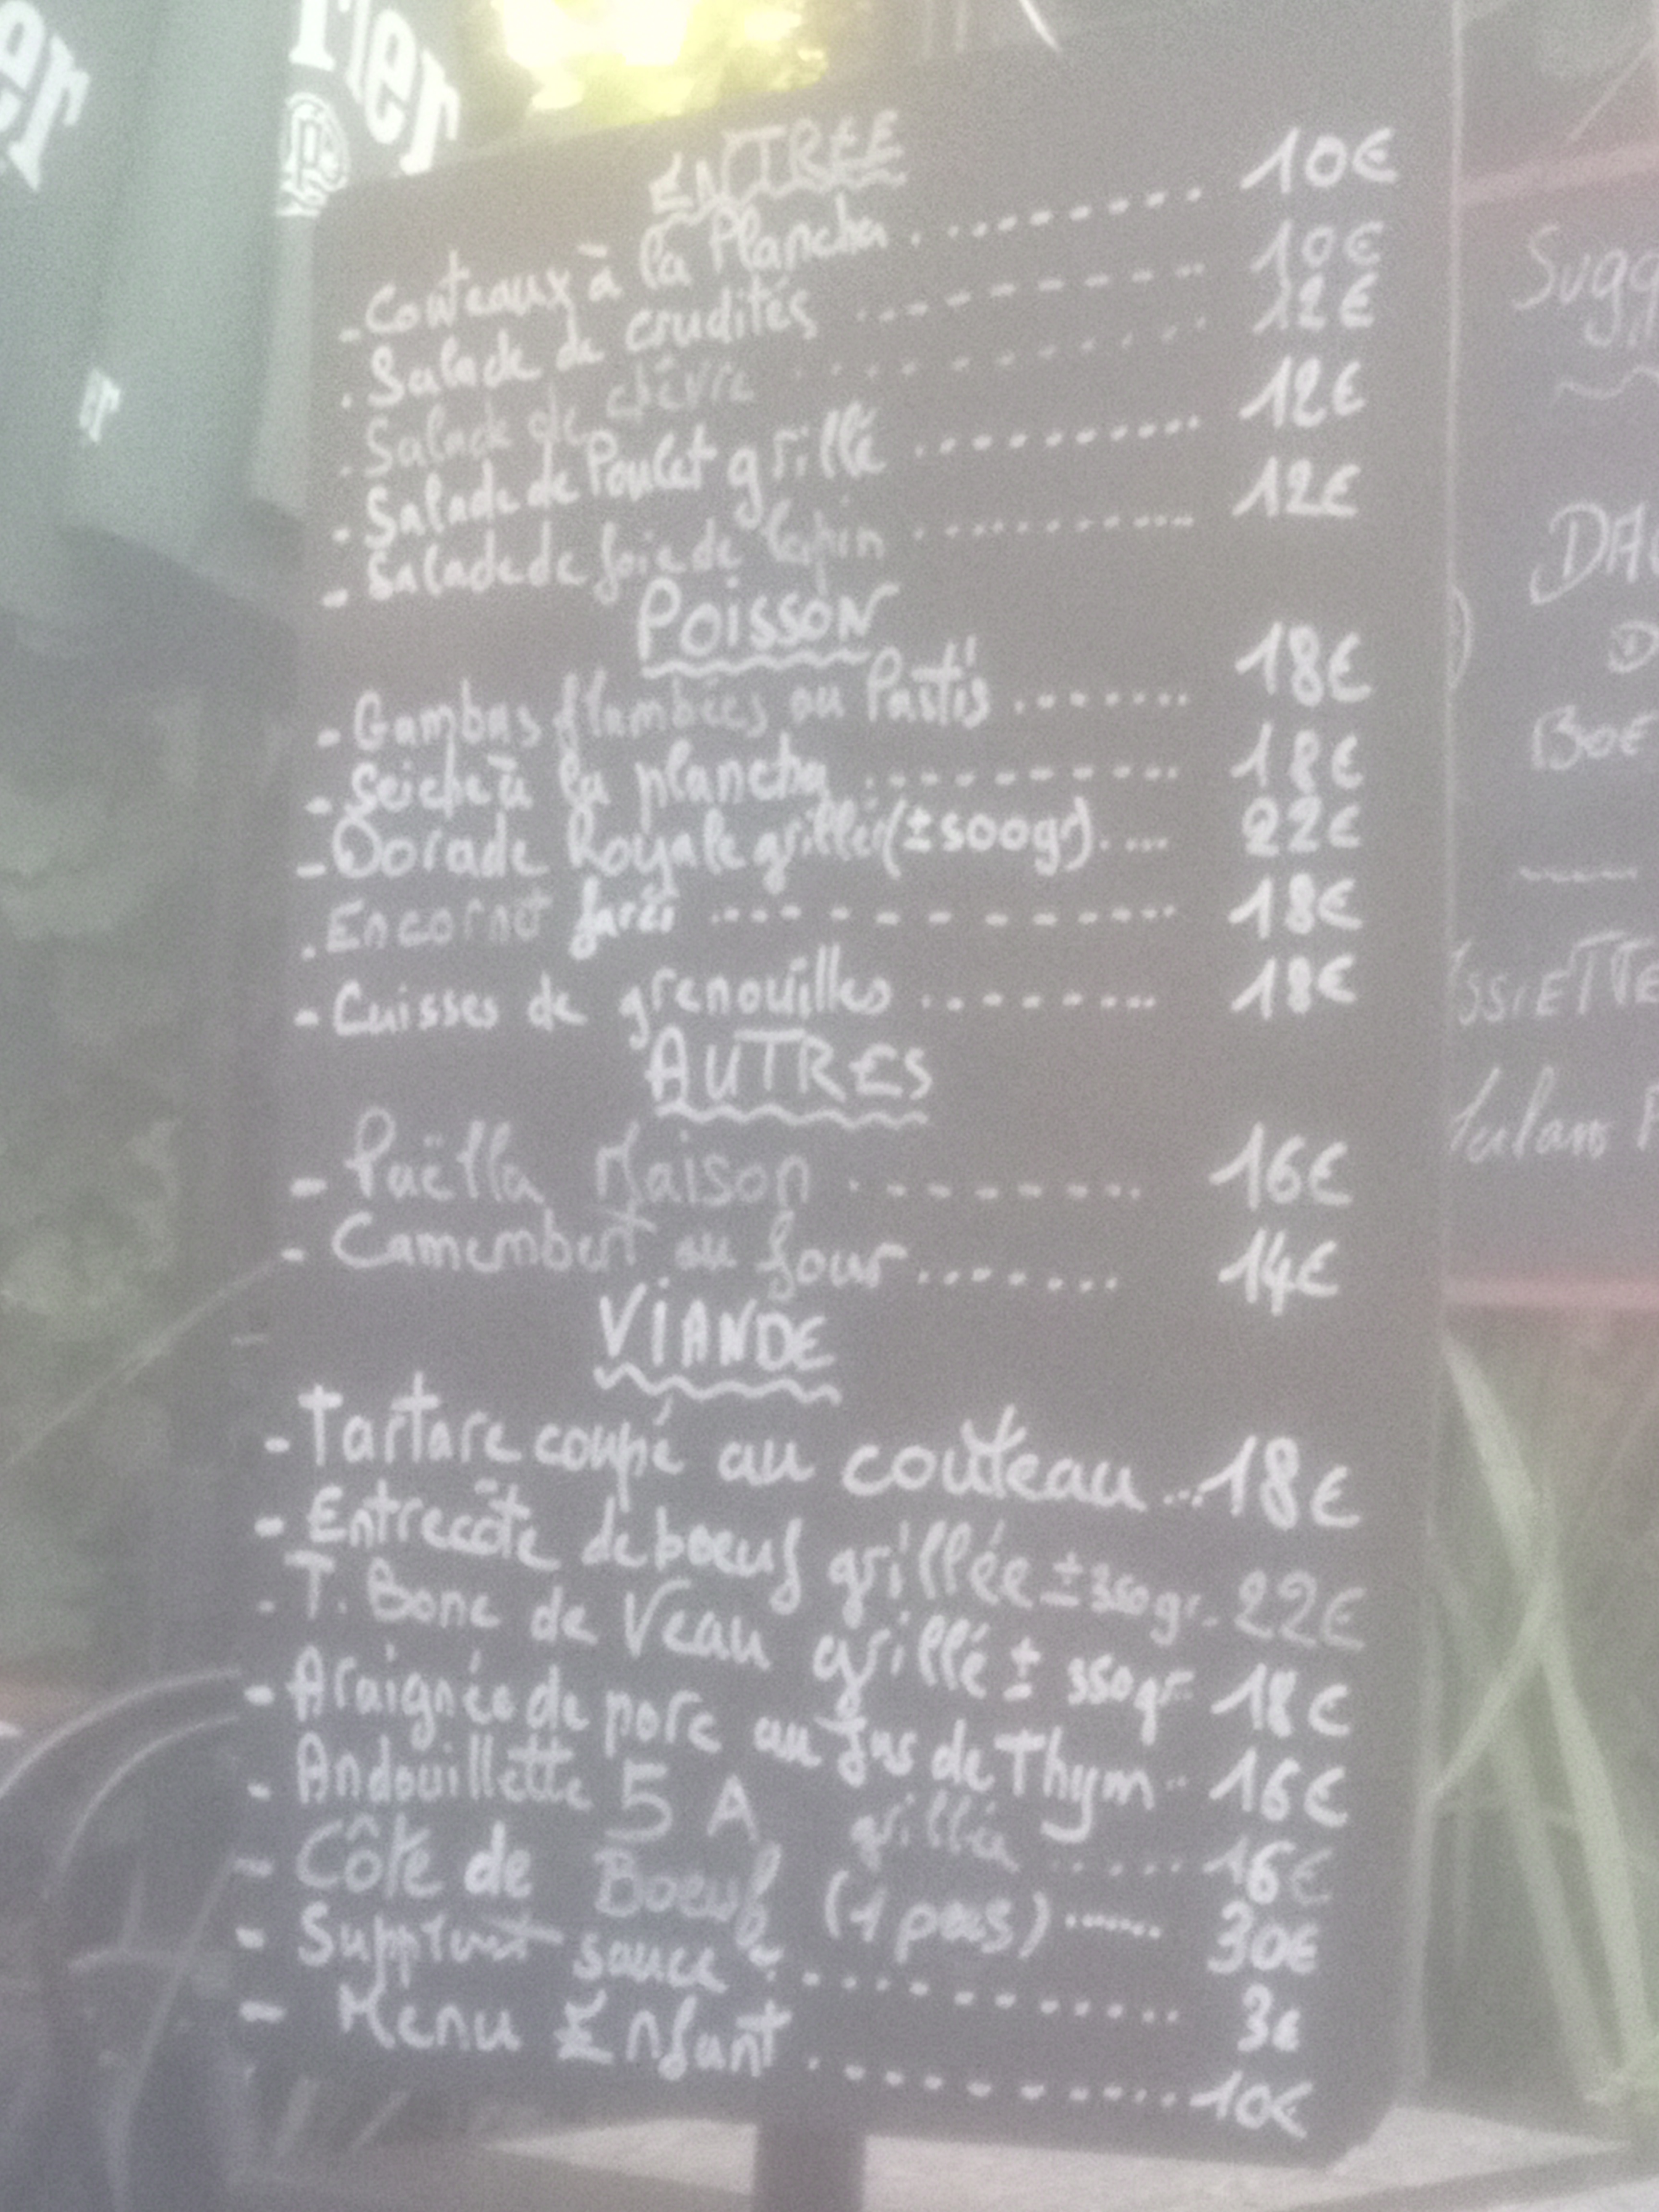 er
rier
er
ENTREE
- Couteaux à la Plancha ......... 10€
. Salade de crudités ......... 10€
. Salade de chèvre ......... 12€
. Salade de Poulet grillé ......... 12€
- Salade de foie de lapin ......... 12€
POISSON
- Gambas flambées au Pastis ....... 18€
- Seiche à la plancha ......... 18€
- Dorade Royale grillée (±500gr).... 22€
. Encornet farci ......... 18€
- Cuisses de grenouilles ........ 18€
AUTRES
- Paëlla Maison ........ 16€
- Camembert au four ....... 14€
VIANDE
- Tartare coupé au couteau ... 18€
- Entrecôte de boeuf grillée ±350gr. 22€
. T. Bone de Veau grillé ± 350gr 18€
- Araignée de porc au Jus de Thym .. 16€
. Andouillette 5 A grillée ..... 16€
- Côte de Boeuf (1 pers) ...... 30€
- Supplémt sauce : ......... 3€
- Menu Enfant ......... 10€
Sugg
DAU
D
BOE
SSIETTE